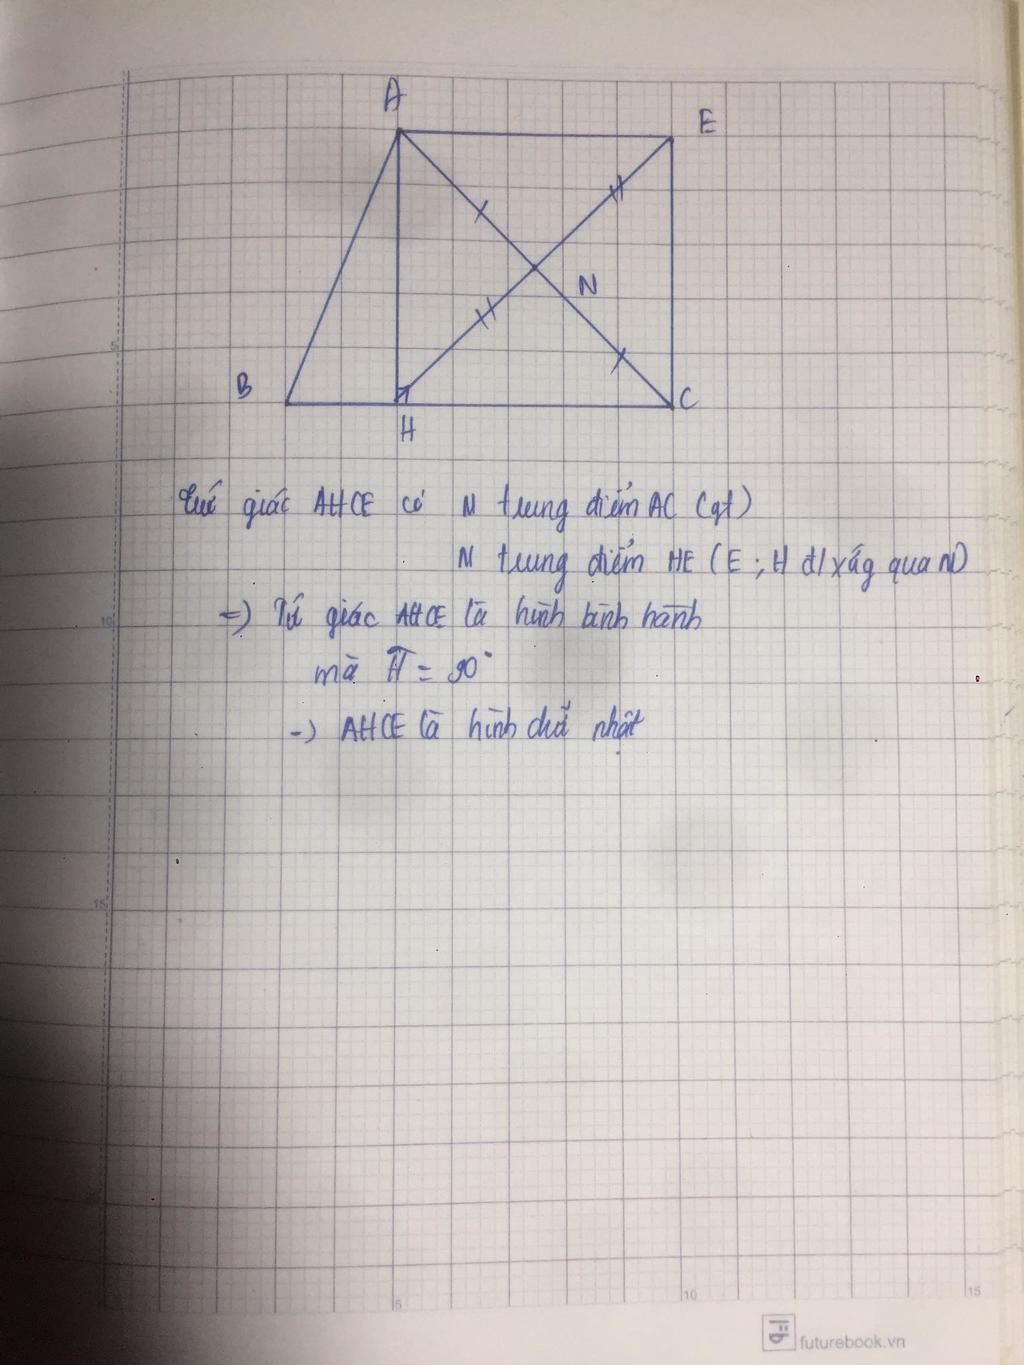 A
E
N
B
H
C
5
Tứ giác AHCE có N trung điểm AC (gt)
N trung điểm HE (E ; H đ/xág qua N)
10
=) Tứ giác AHCE là hình bình hành
mà H = 90°
-) AHCE là hình chữ nhật
15
20
5
10
15
futurebook.vn